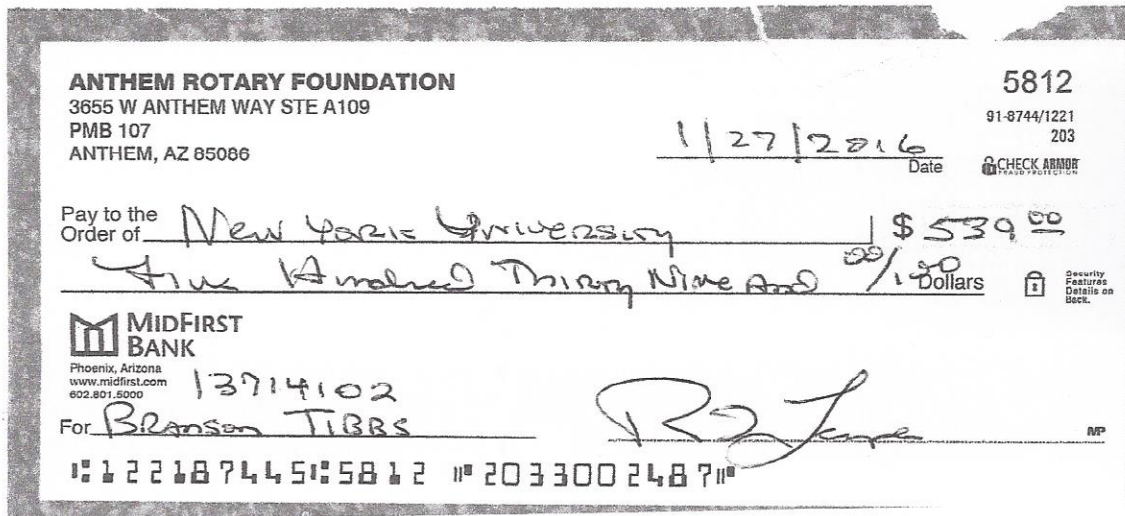 ANTHEM ROTARY FOUNDATION
5812
3655 W ANTHEM WAY STE A109
91-8744/1221
PMB 107
203
ANTHEM, AZ 85086
1/27/2016
Date
CHECK ARMOR
FRAUD PROTECTION
Pay to the
Order of New York University $ 539 00
Five Hundred Thirty Nine And 00/100 Dollars
Security
Features
Details on
Back.
MIDFIRST
BANK
Phoenix, Arizona
www.midfirst.com
602.801.5000
13714102
For Branson TIBBS
MP
⑆122187445⑆5812 ⑈2033002487⑈